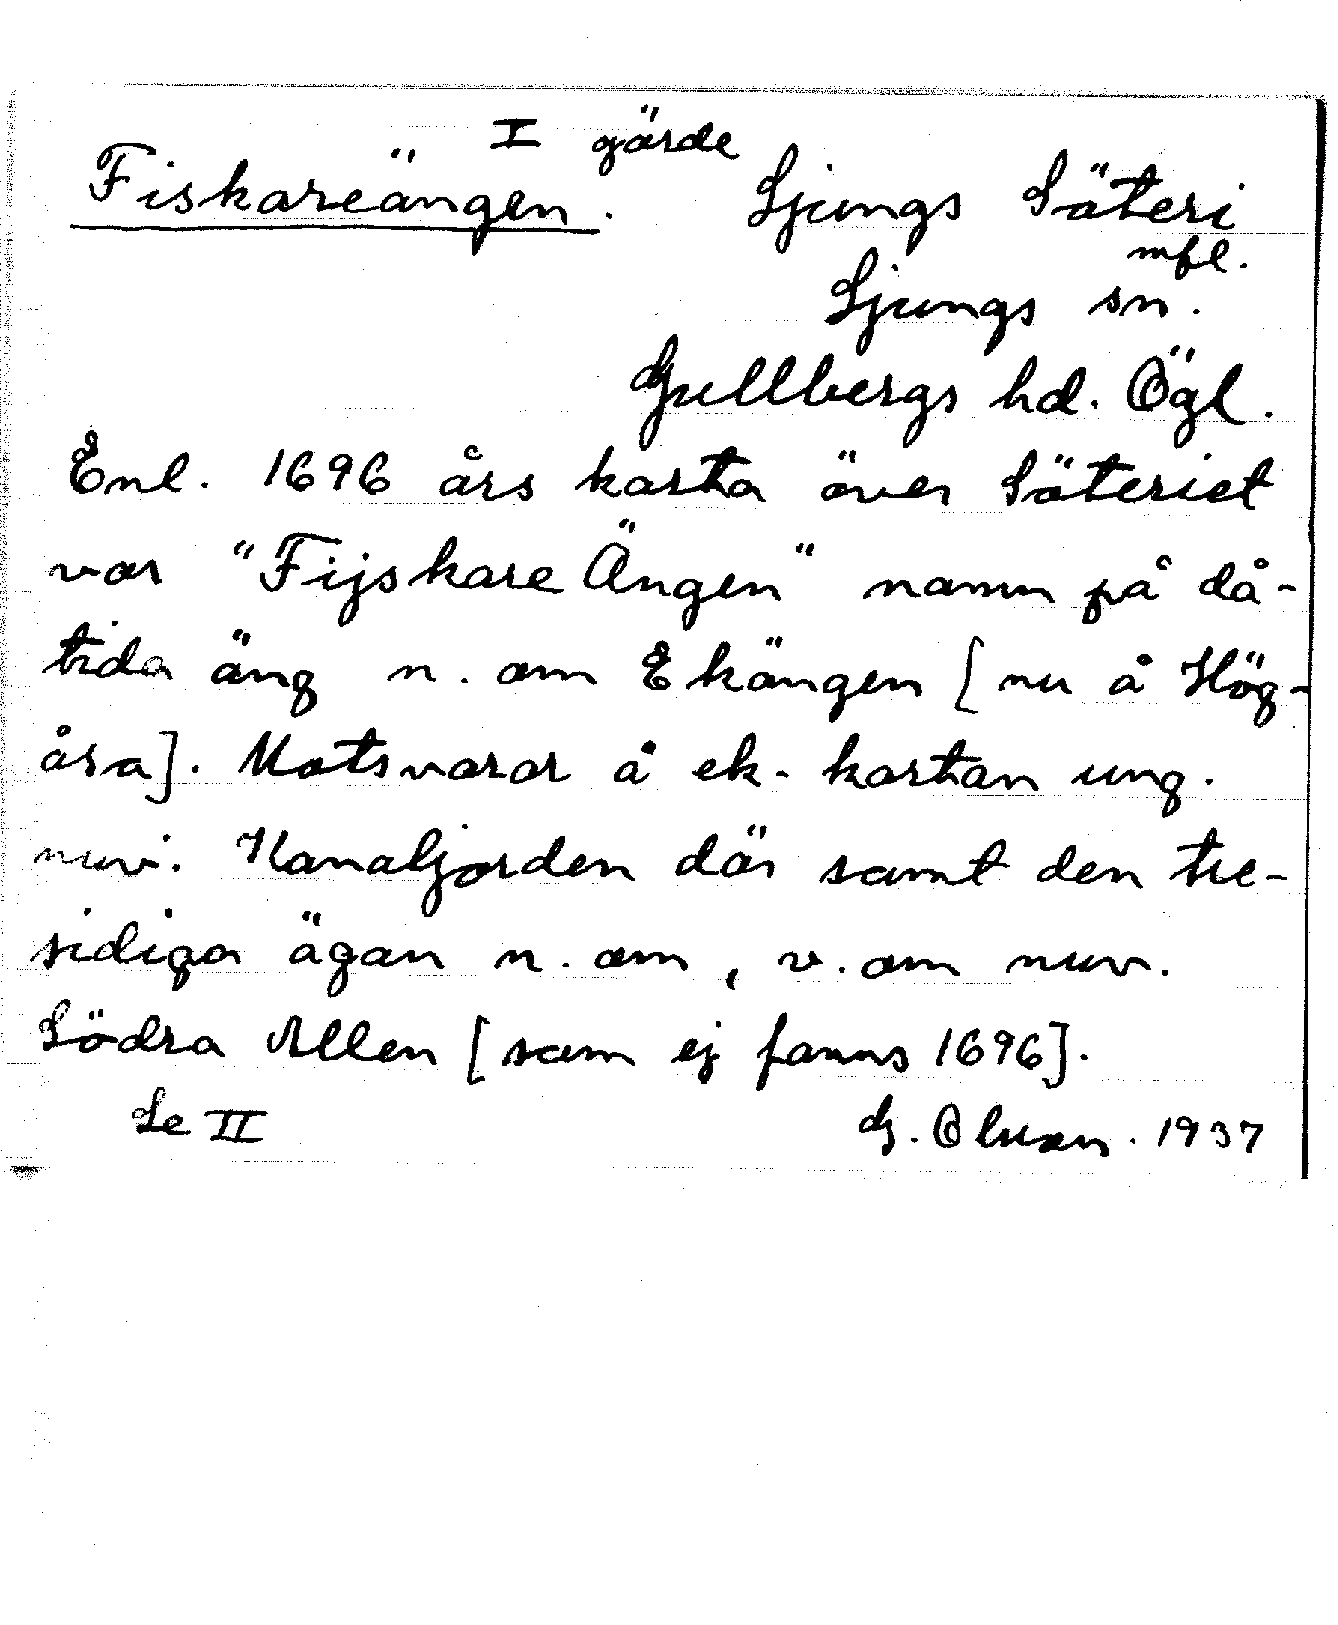 I gärde
Fiskareängen. Ljungs Säteri
mfl.
Ljungs sn.
Gullbergs hd. Ögl.
Enl. 1696 års karta över Säteriet
var "Fijskare Ängen" namn på då-
tida äng n. om Ekängen [nu å Hög-
åsa]. Motsvarar å ek. kartan ung.
nuv. Kanaljorden där samt den tre-
sidiga ägan n. om, v. om nuv.
Södra Allen [som ej fanns 1696].
Le II G. Olsson. 1937